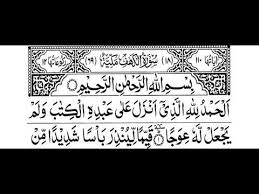 اٰيَاتُهَا ١١٠ (١٨) سُوْرَةُ الْكَهْفِ مَكِّيَّةٌ (٦٩) رُكُوْعَاتُهَا ١٢
بِسْمِ اللّٰهِ الرَّحْمٰنِ الرَّحِيْمِ
اَلْحَمْدُ لِلّٰهِ الَّذِىْۤ اَنْزَلَ عَلٰى عَبْدِهِ الْكِتٰبَ وَلَمْ
يَجْعَلْ لَّهٗ عِوَجًا ۜ۝١ قَيِّمًا لِّيُنْذِرَ بَاْسًا شَدِيْدًا مِّنْ